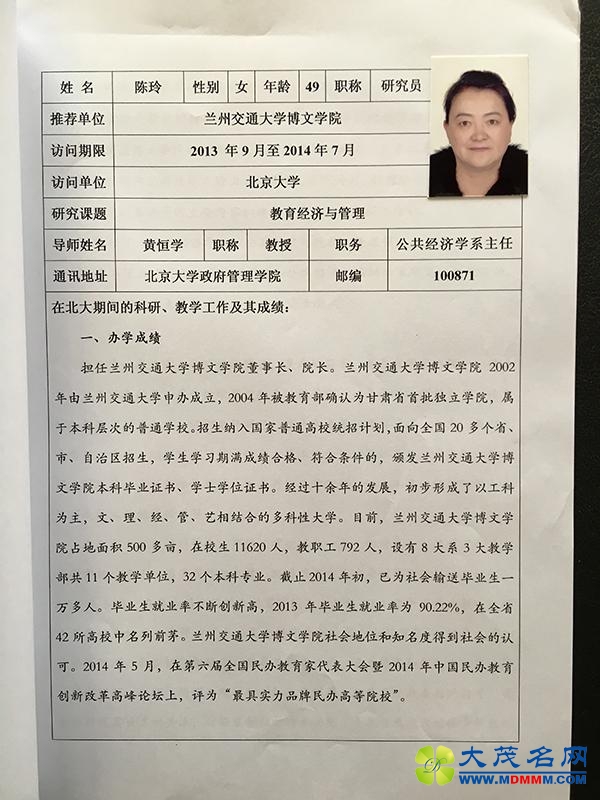 姓 名 陈玲 性别 女 年龄 49 职称 研究员
推荐单位 兰州交通大学博文学院
访问期限 2013 年9月至2014年7月
访问单位 北京大学
研究课题 教育经济与管理
导师姓名 黄恒学 职称 教授 职务 公共经济学系主任
通讯地址 北京大学政府管理学院 邮编 100871
在北大期间的科研、教学工作及其成绩:
一、办学成绩
担任兰州交通大学博文学院董事长、院长。兰州交通大学博文学院 2002
年由兰州交通大学申办成立，2004 年被教育部确认为甘肃省首批独立学院，属
于本科层次的普通学校。招生纳入国家普通高校统招计划，面向全国 20 多个省、
市、自治区招生，学生学习期满成绩合格、符合条件的，颁发兰州交通大学博
文学院本科毕业证书、学士学位证书。经过十余年的发展，初步形成了以工科
为主，文、理、经、管、艺相结合的多科性大学。目前，兰州交通大学博文学
院占地面积 500 多亩，在校生 11620 人，教职工 792 人，设有 8 大系 3 大教学
部共 11 个教学单位，32 个本科专业。截止 2014 年初，已为社会输送毕业生一
万多人。毕业生就业率不断创新高，2013 年毕业生就业率为 90.22%，在全省
42 所高校中名列前茅。兰州交通大学博文学院社会地位和知名度得到社会的认
可。2014 年 5 月，在第六届全国民办教育家代表大会暨 2014 年中国民办教育
创新改革高峰论坛上，评为“最具实力品牌民办高等院校”。
大茂名网
WWW.MDMMM.COM